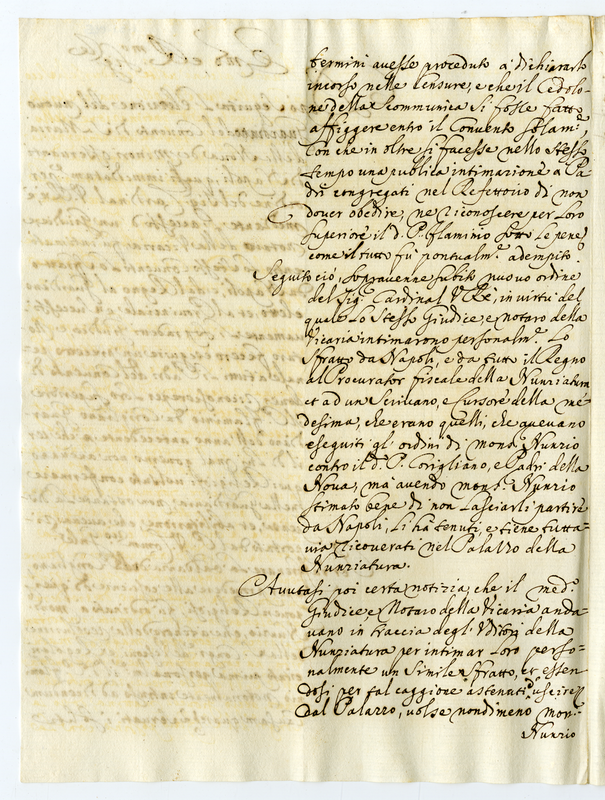 termini auesse proceduto a' dichiararlo
incorso nelle Censure, e che il Cedolo-
ne della Scommunica si fosse fatto
affiggere entro il Conuento solam.e
Con che in oltre si facesse nello stesso
tempo una publica intimazione a Pa-
dri congregati nel Refettorio di non
douer obedire, ne riconoscere per loro
superiore il d.o P. Flaminio sotto le pene
come il tutto fu' pontualm.e adempito.
Seguito ciò, soprauenne subito nuouo ordine
del Sig.r Cardinal V. Rè, in uirtu del
quale lo stesso Giudice, e Notaro della
Vicaria intimarono personalm.e lo
sfratto da Napoli, e da tutto il Regno
al Procurator fiscale della Nunziatura
et ad un Scriuano, e Cursore della me-
desima, che erano quelli, che aueuano
eseguiti gl' ordini di mons.r Nunzio
contro il d.o P. Corigliano, e Padri della
Noua, ma' auendo mons.r Nunzio
stimato bene di non lasciarli partire
da Napoli, li ha tenuti, e tiene tutta-
uia ricouerati nel Palazzo della
Nunziatura.
Auutasi poi certa notizia, che il med.o
Giudice, e Notaro della Vicaria anda-
uano in traccia degl' Vditori della
Nunziatura per intimar loro perso-
nalmente un simile sfratto, et essen-
dosi per tal caggione astenuti d' uscire
dal Palazzo, uolse nondimeno mons.r
Nunzio